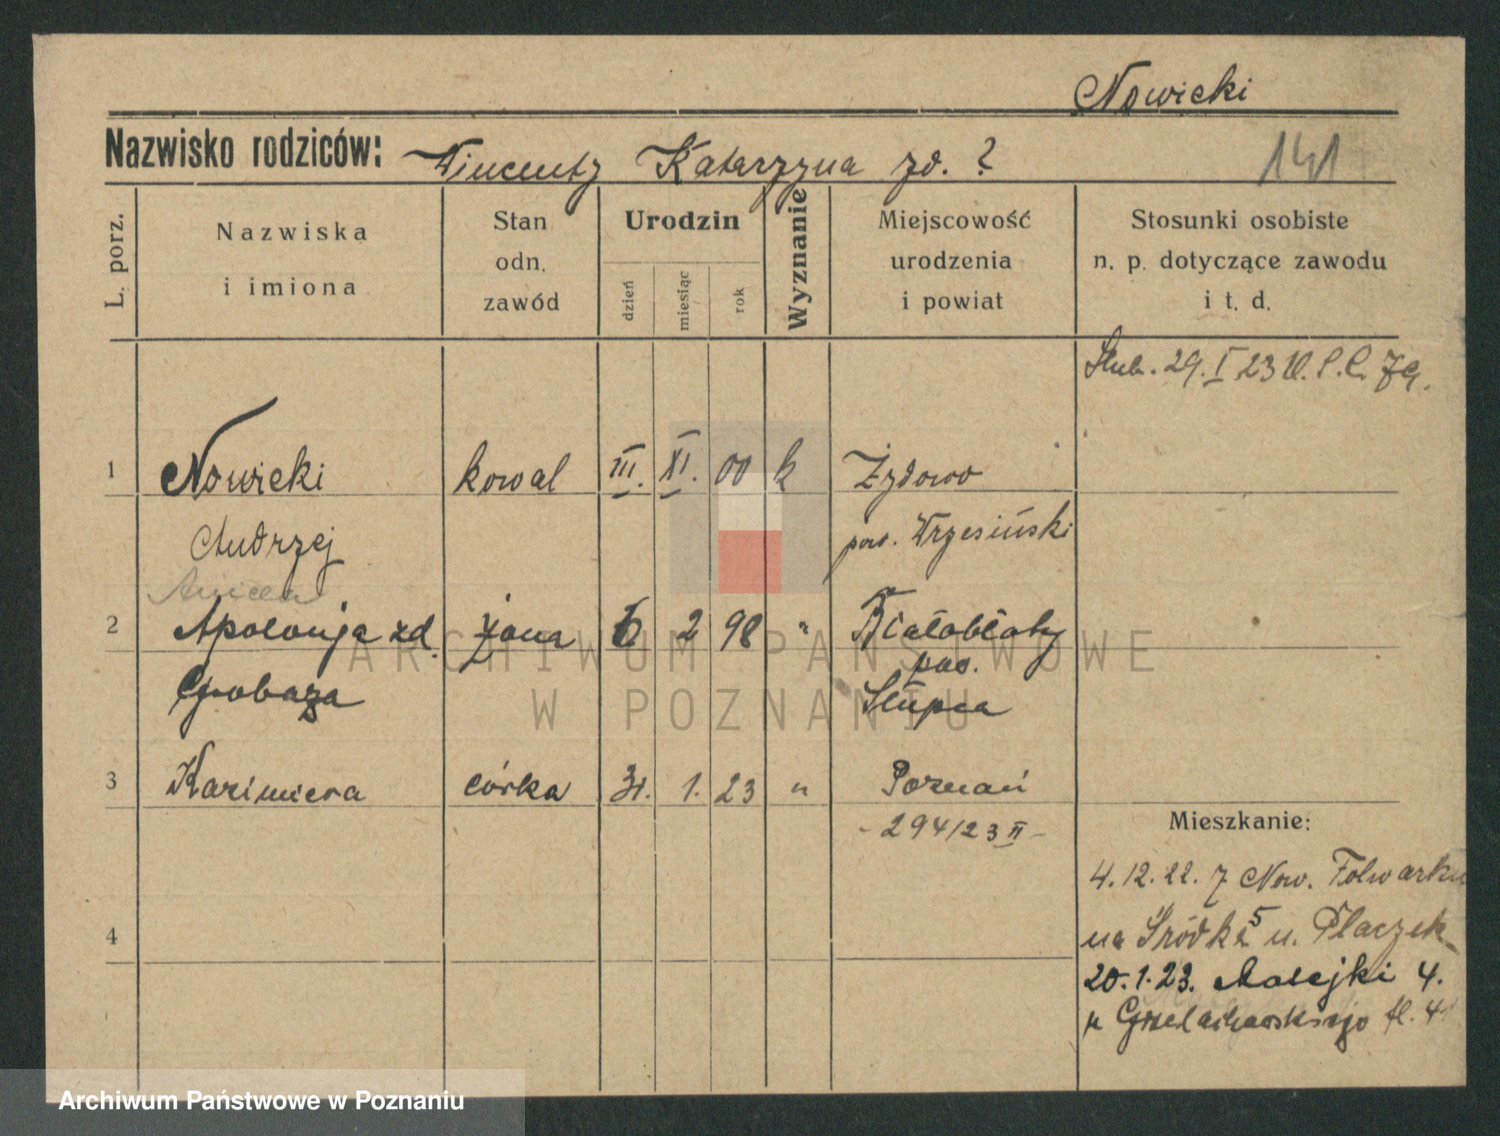 Nowicki
Nazwisko rodziców: Wincenty Katarzyna zd. ?
141
L. porz.
Nazwiska
i imiona
Stan
odn.
zawód
Urodzin
dzień
miesiąc
rok
Wyznanie
Miejscowość
urodzenia
i powiat
Stosunki osobiste
n. p. dotyczące zawodu
i t. d.
Ślub. 29. I 23 U. S. C. 79.
1 Nowicki kowal III. XI. 00 k Żydowo
Andrzej pow. Wrzesiński
2 Apolonja zd. żona 6 2 98 " Białobłoty
pow.
Grobaza Słupca
3 Kazimiera córka 31. 1. 23 " Poznań
- 294/23 II -
Mieszkanie:
4. 12. 22. z Now. Folwarku
4 na Śródkę 5 u. Płaczek
20. 1. 23. Małejki 4.
u
ARCHIWUM PAŃSTWOWE
W POZNANIU
Archiwum Państwowe w Poznaniu